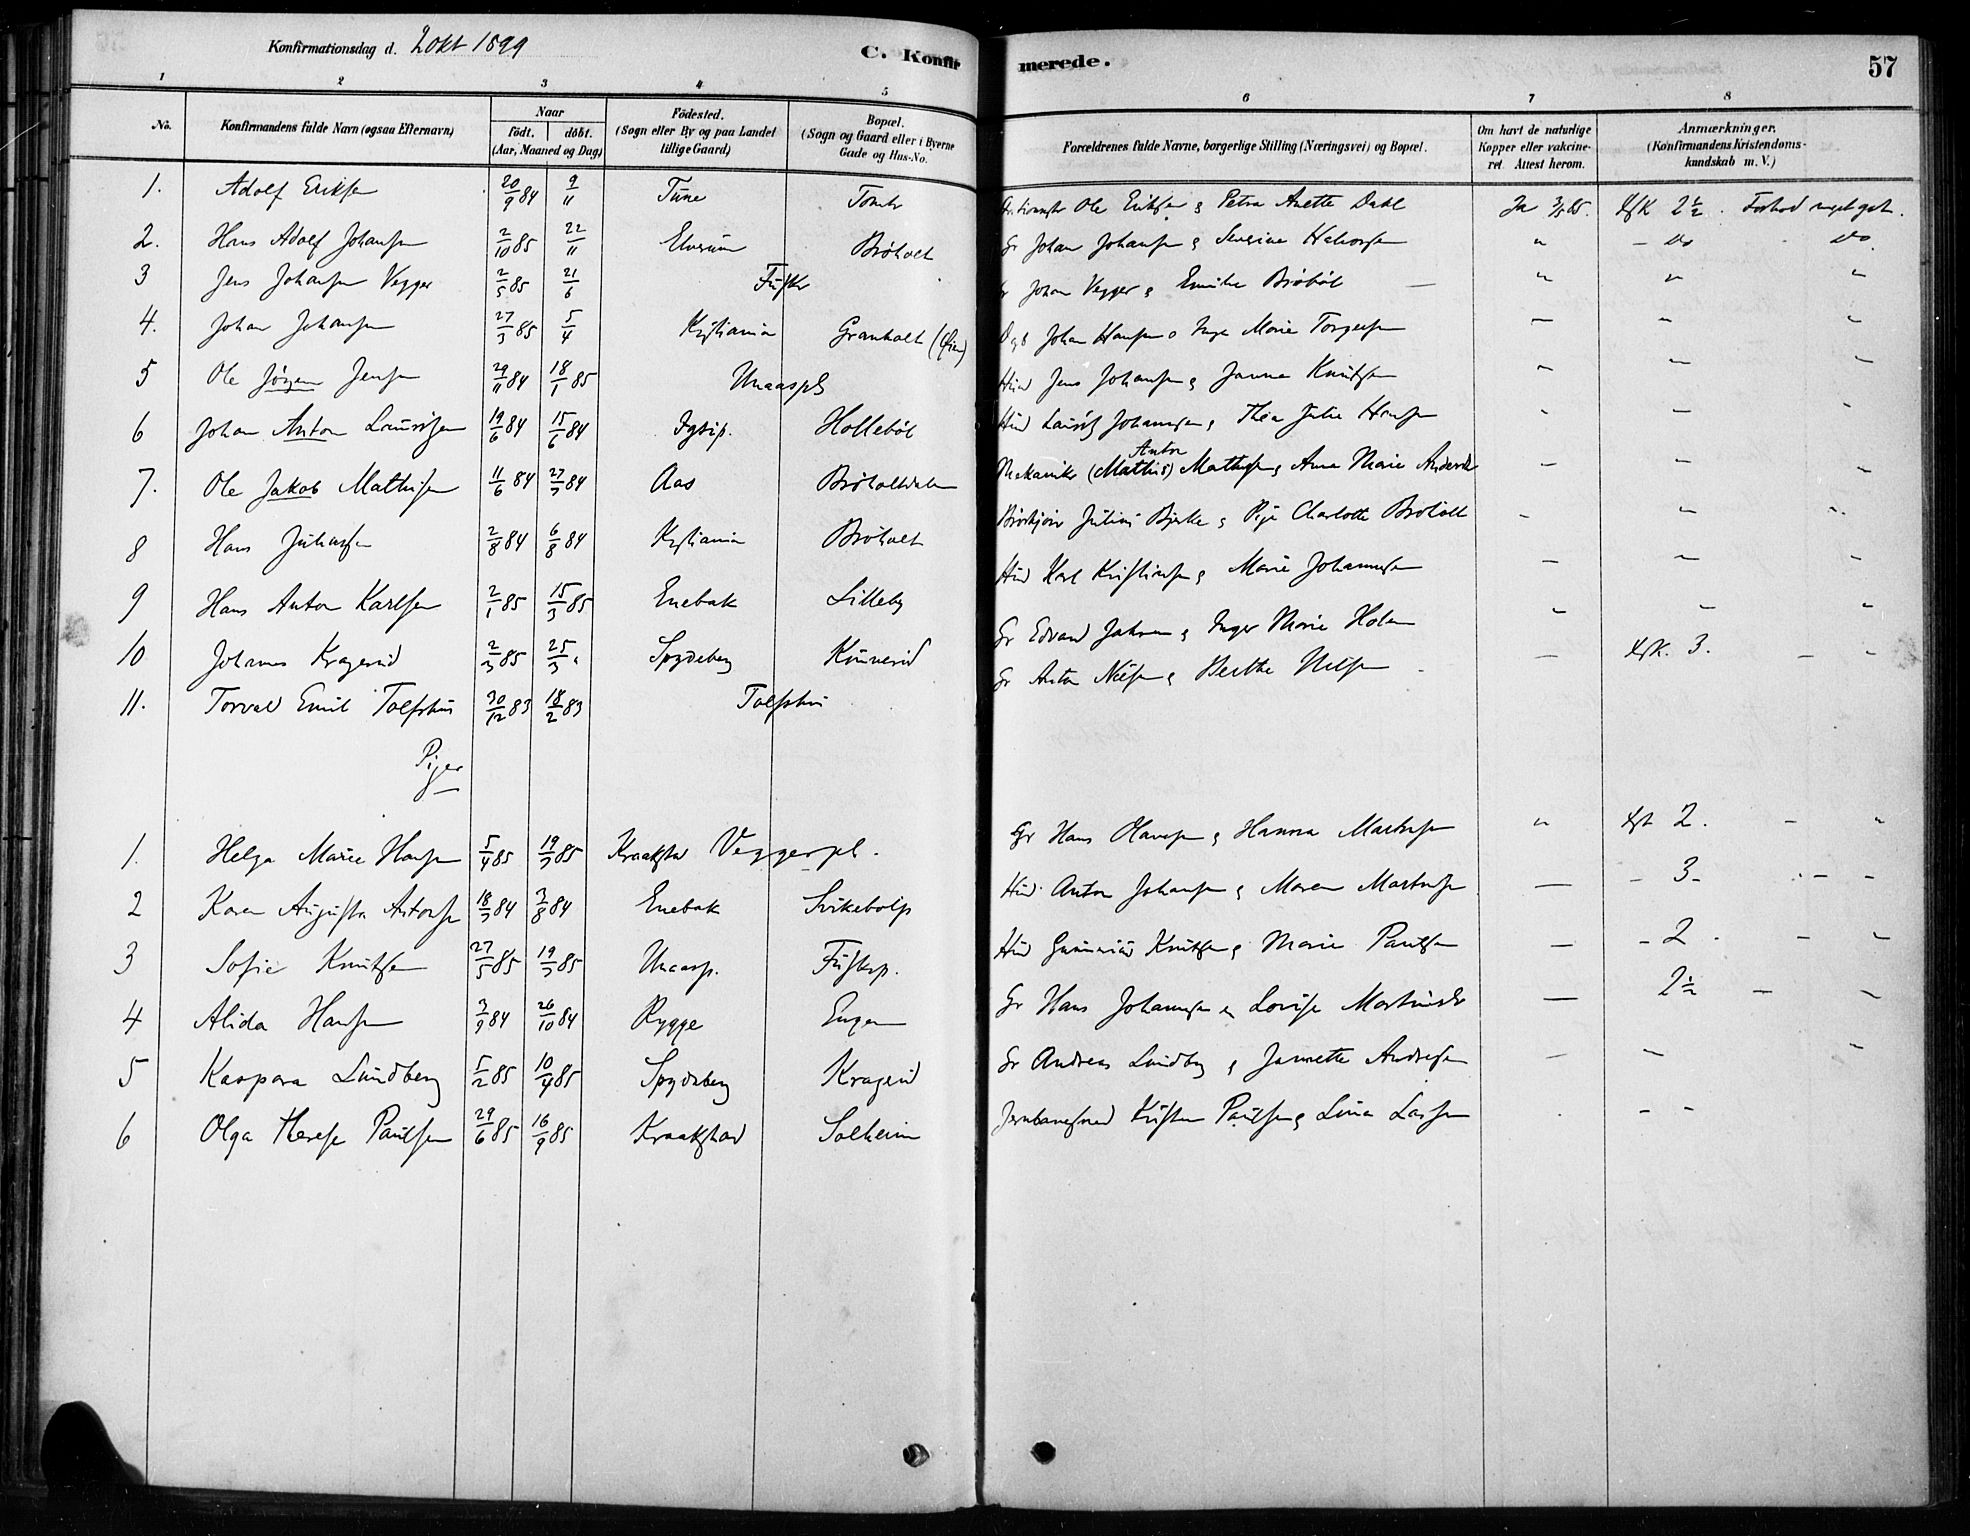 Konfirmationsdag d. 2 okt 1899
C. Konfirmerede.
57
1 2 3 4 5 6 7 8
No.
Konfirmandens fulde Navn (ogsaa Efternavn)
Naar
födt. döbt.
(Aar, Maaned og Dag)
Födested.
(Sogn eller By og paa Landet
tillige Gaard)
Bopæl.
(Sogn og Gaard eller i Byerne
Gade og Hus-No.
Forældrenes fulde Navne, borgerlige Stilling (Næringsvei) og Bopæl.
Om havt de naturlige
Kopper eller vakcine-
ret Attest herom.
Anmærkninger.
(Konfirmandens Kristendoms-
kundskab m. V.)
1. Adolf Eriksen 20/9 84 9/11 Tune Tomter Ole Eriksen & Petra Anette Dahl Ja 2½. Forhold meget godt.
2. Hans Adolf Johansen 2/10 85 22/11 Elverum Bröholt Gr Johan Johansen & Severine Halvorsen " - do - do.
3 Jens Johansen Vegger 2/5 85 21/6 Johan Vegger & " " "
4. Johan Johansen 27/3 85 5/4 Kristiania Granholt Johan Hansen & Inger Marie Torgersen — " "
5 Ole Jörgen Jensen 29/11 84 18/1 85 Unaaspl Jens Johansen & Janna Knutsen " — "
6 Johan Anton Lauritsen 19/6 84 15/6 84 Hollebøl Laurits Johannesen & Thea Julie Hansen " — "
7. Ole Jakob Mathisen 11/6 84 27/7 84 Aas Bröholtdalen Mekaniker (Mathis) Anton Mathisen & Anne Marie Andersdr — — "
8 Hans Juliussen 2/8 84 6/8 84 Kristiania Bröholt Julius Bjerke & Pige Charlotte Bröholt - " "
9 Hans Anton Karlsen 2/1 85 15/3 85 Enebak Lilleby Karl Kristiansen & Marie Johannesen — — "
10 Johannes Kragerud 2/3 85 25/3 " Spydeberg Gr Edvard Jahren & Inger Marie Holen " — "
11. Torvald Emil Tolfshus 30/12 83 18/2 83 Tolfshus Gr Anton Nilsen & Berthe Nilsen — 3. — "
Piger
1. Helga Marie Hansen 5/4 85 19/7 85 Kraakstad Veggerpl. Gr Hans Olavesen & Hanna Martinsen " 2. - "
2 Karen Augusta Antonsen 18/7 84 3/8 84 Enebak Svikebøl Anton Johansen & Maren Martinsen — - 3 - - "
3 Sofie Knutsen 27/5 85 19/7 85 Unaasp. Knutsen & Marie Paulsen — - 2 - "
4 Alida Hansen 3/9 84 26/10 84 Rygge Engen Gr Hans Johannesen & Lovise Martinsdr — 2½ — "
5 Kaspara Lundberg 5/2 85 10/4 85 Spydeberg Kragerud Gr Andreas Lundby & Jannette Andresen — — "
6 Olga Therese Paulsen 29/6 85 16/9 85 Kraakstad Solheim Paulsen & Lina Larsen . - -